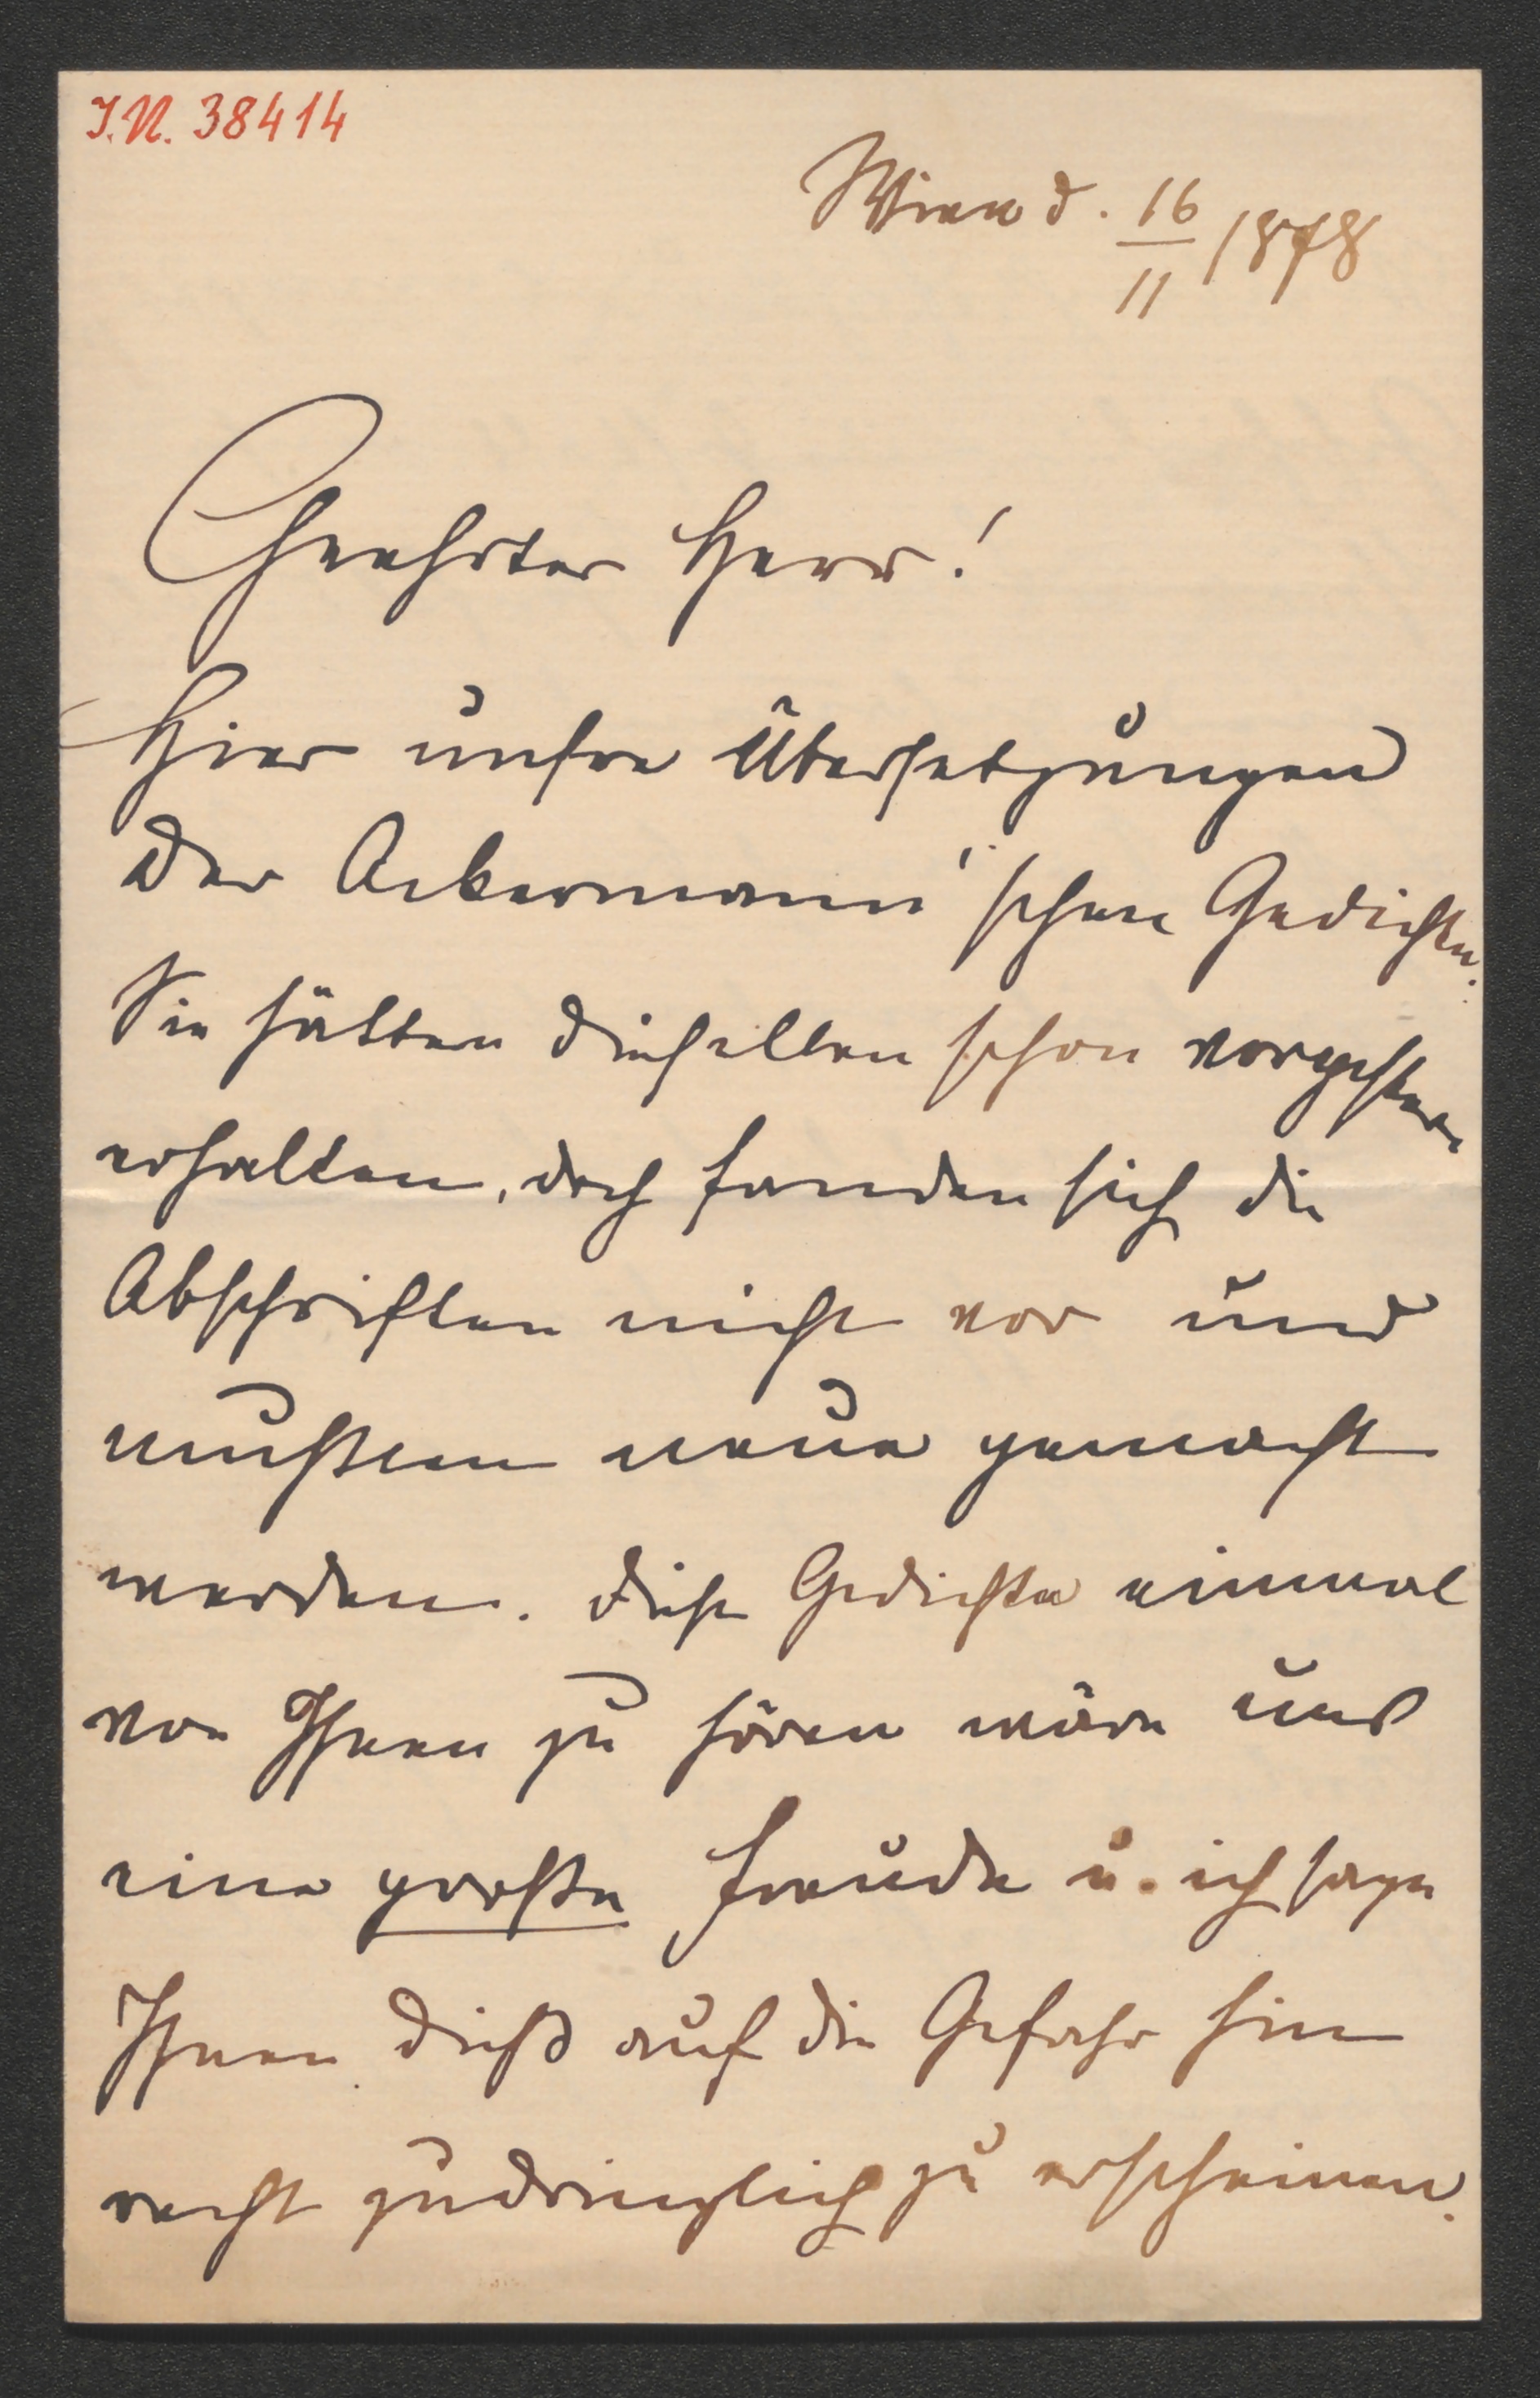 I.N. 38414
Wien d. 16/11 1878
Geehrter Herr!
Hier unsre Übersetzungen
der Ackermann'schen Gedichte.
Sie hätten dieselben schon vorgestern
erhalten, doch fanden sich die
Abschriften nicht vor und
mußten neue gemacht
werden. Diese Gedichte einmal
von Ihnen zu hören wäre uns
eine große Freude u. ich sage
Ihnen dieß auf die Gefahr hin
recht zudringlich zu erscheinen.